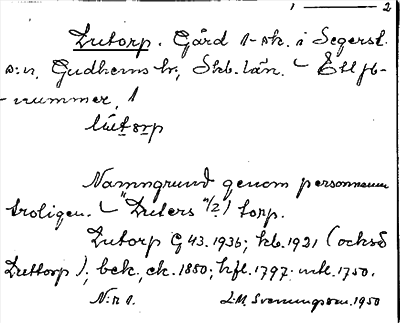 1 ——— 2
Dutorp. Gård 1-sk. i Segerst.
s:n, Gudhems hr., Skb. län. – Ett jb-
-nummer, 1
Namngrund genom personnamn
troligen. – "Duters"(?) torp.
Dutorp G 43. 1936; kb. 1921 (också
Duttorp); bek. ek. 1880; hfl. 1797; mtl. 1750.
N:r 1. J.M. Svenungsson. 1950